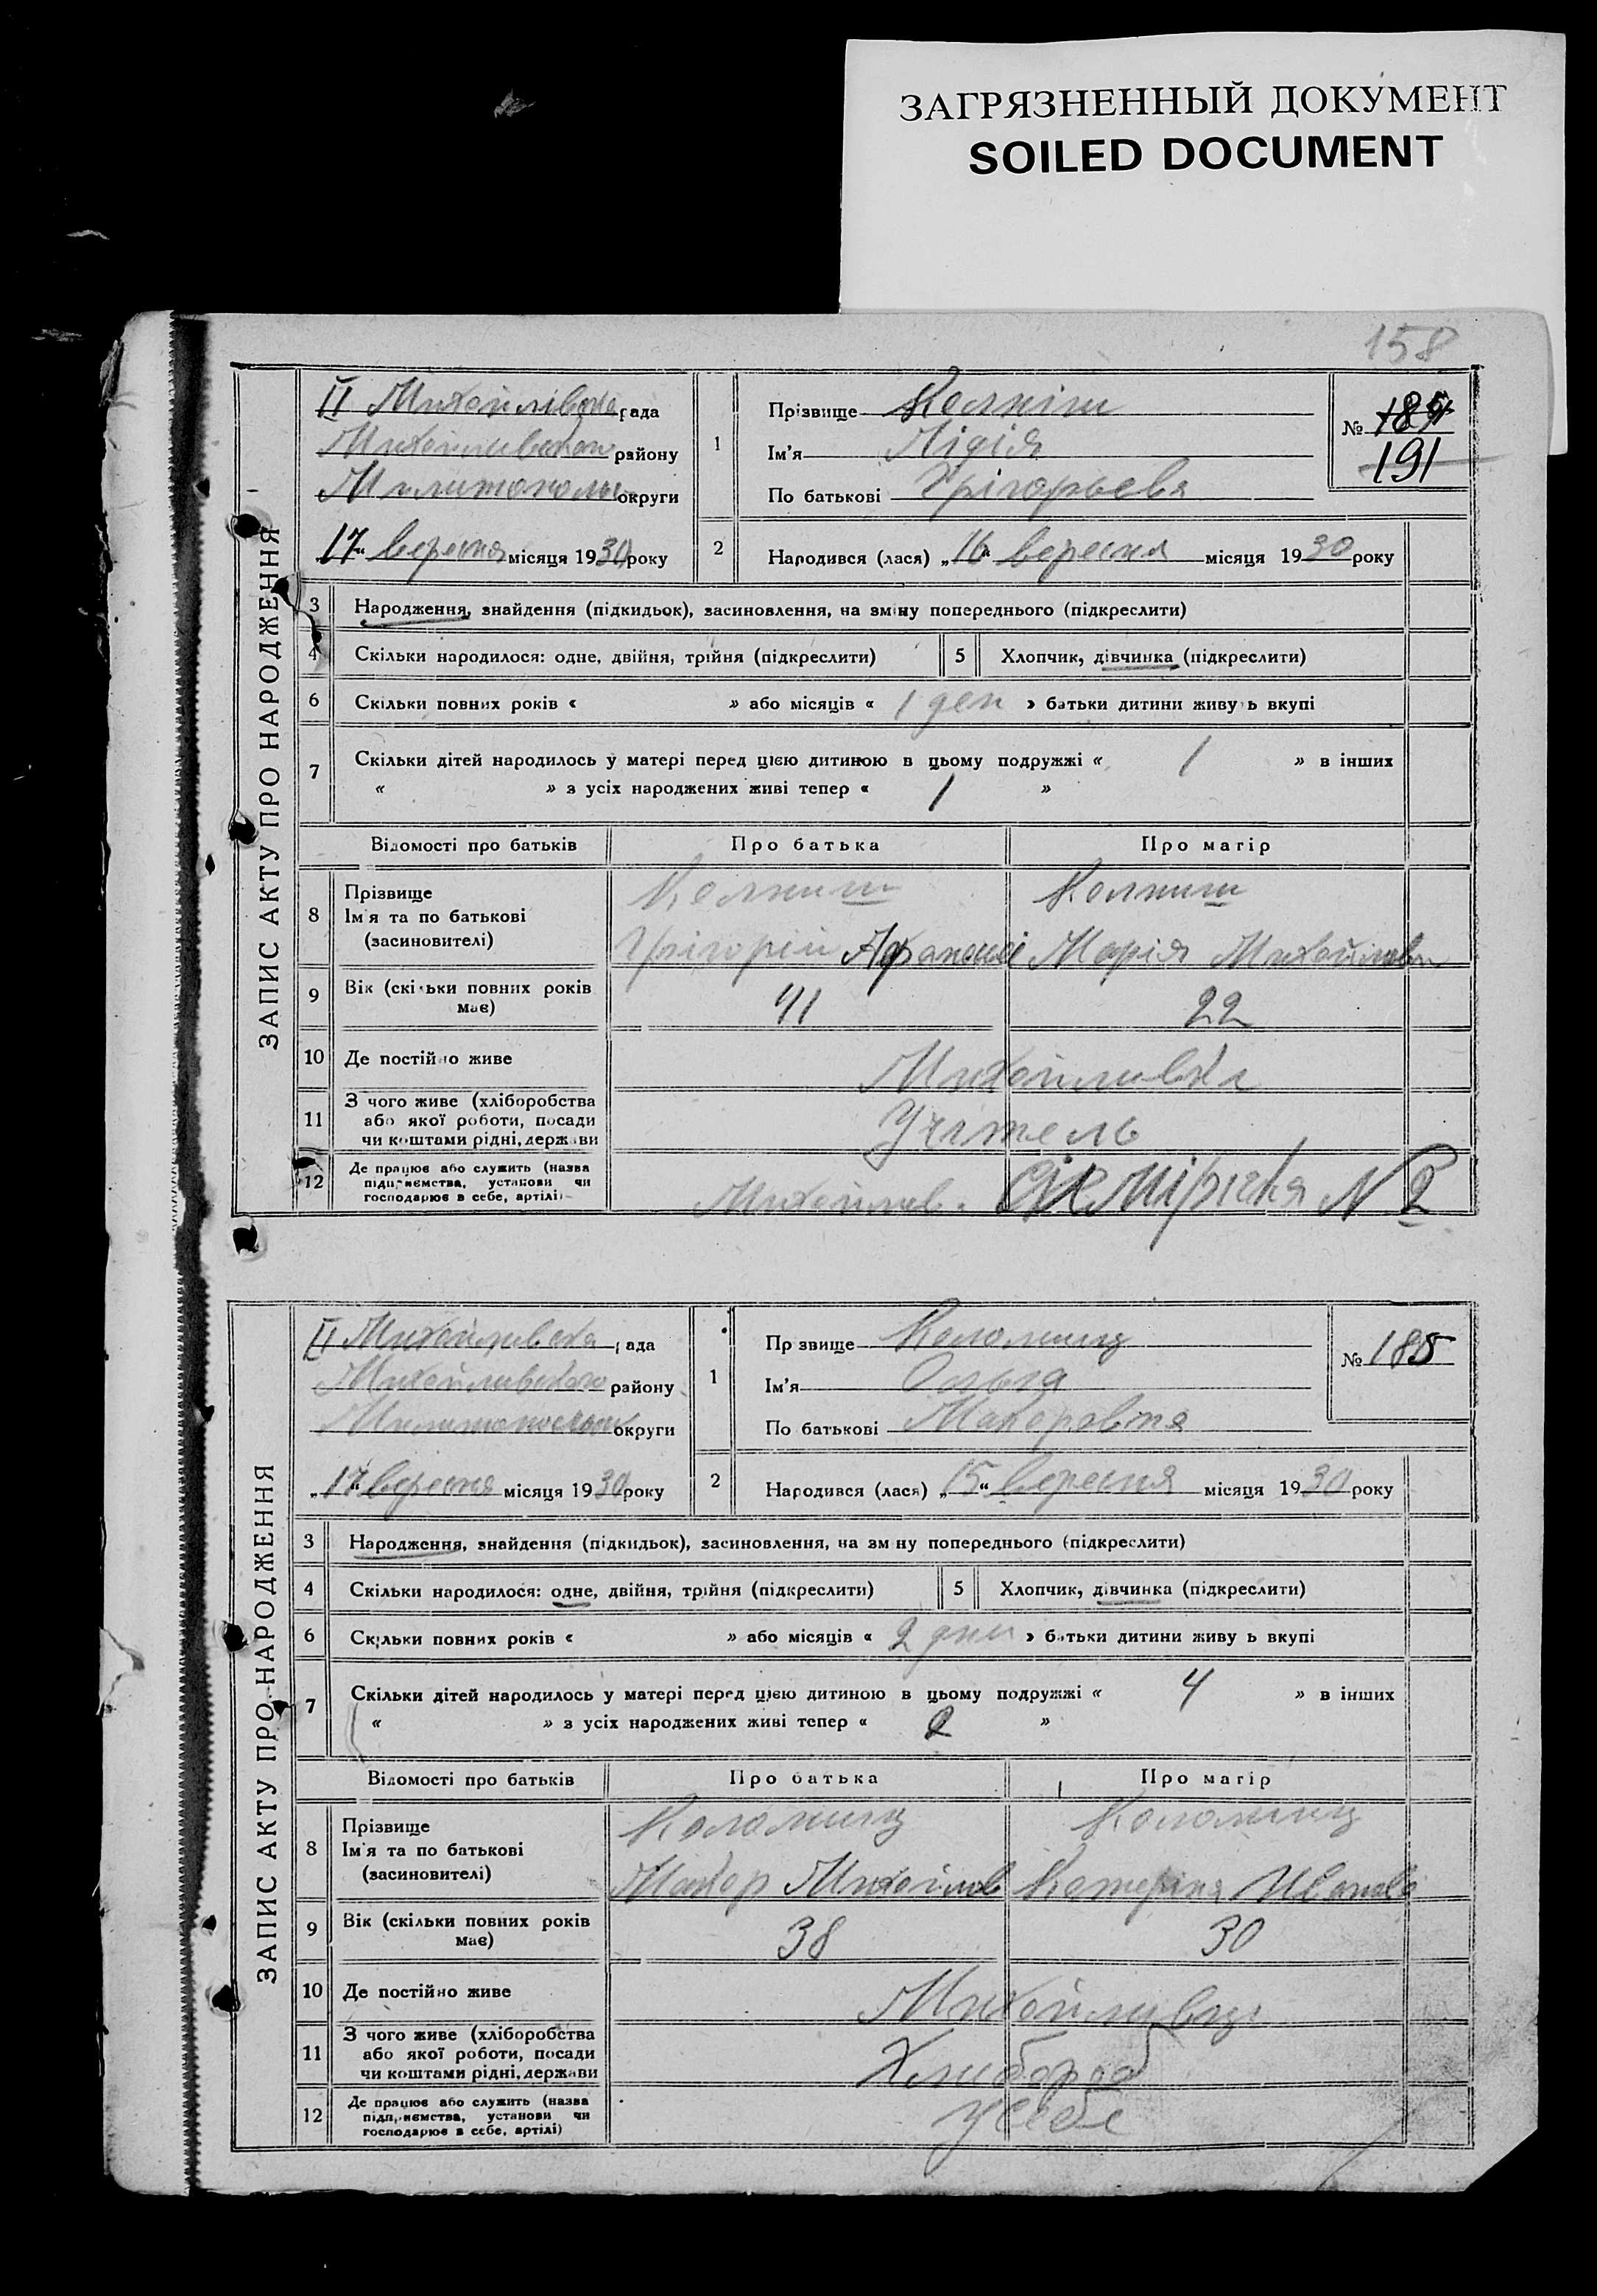 ЗАГРЯЗНЕННЫЙ ДОКУМЕНТ
SOILED DOCUMENT
158
ЗАПИС АКТУ ПРО НАРОДЖЕННЯ
II Михайлівска рада
Михайливского району
Милитополь округи
17 вересня місяця 1930 року
1 Прізвище
Ім'я Лідія
По батькові Грігорьевя
№ 191
2 Народився (лася) „16“ вересня місяця 1930 року
3 Народження, знайдення (підкидьок), засиновлення, на зміну попереднього (підкреслити)
4 Скільки народилося: одне, двійня, трійня (підкреслити) 5 Хлопчик, дівчинка (підкреслити)
6 Скільки повних років « » або місяців « 1 ден » батьки дитини живуть вкупі
7 Скільки дітей народилось у матері перед цією дитиною в цьому подружжі « 1 » в інших
« » з усіх народжених живі тепер « 1 »
Відомості про батьків Про батька Про матір
8 Прізвище
Ім'я та по батькові Грігорій Марія
(засиновителі)
9 Вік (скільки повних років має) 41 22
10 Де постійно живе Михайливка
11 З чого живе (хліборобства
або якої роботи, посади Учітель
чи коштами рідні, держави
12 Де працює або служить (назва
підприємства, установи чи
господарює в себе, артілі) Михайлив. N 2
ЗАПИС АКТУ ПРО НАРОДЖЕННЯ
II Михайливска рада
Михайливского району
округи
„17“ вересня місяця 1930 року
1 Прізвище Коломиец
Ім'я Ольга
По батькові Макаровня
№ 185
2 Народився (лася) „15“ вересня місяця 1930 року
3 Народження, знайдення (підкидьок), засиновлення, на зміну попереднього (підкреслити)
4 Скільки народилося: одне, двійня, трійня (підкреслити) 5 Хлопчик, дівчинка (підкреслити)
6 Скільки повних років « » або місяців « 2 дни » батьки дитини живуть вкупі
7 Скільки дітей народилось у матері перед цією дитиною в цьому подружжі « 4 » в інших
« » з усіх народжених живі тепер « 2 »
Відомості про батьків Про батька Про матір
8 Прізвище Коломиец Коломиец
Ім'я та по батькові Макор Михайлов Катерина Иванов
(засиновителі)
9 Вік (скільки повних років має) 38 30
10 Де постійно живе Михайливци
11 З чого живе (хліборобства
або якої роботи, посади Хлибороб
чи коштами рідні, держави
12 Де працює або служить (назва
підприємства, установи чи у себе
господарює в себе, артілі)